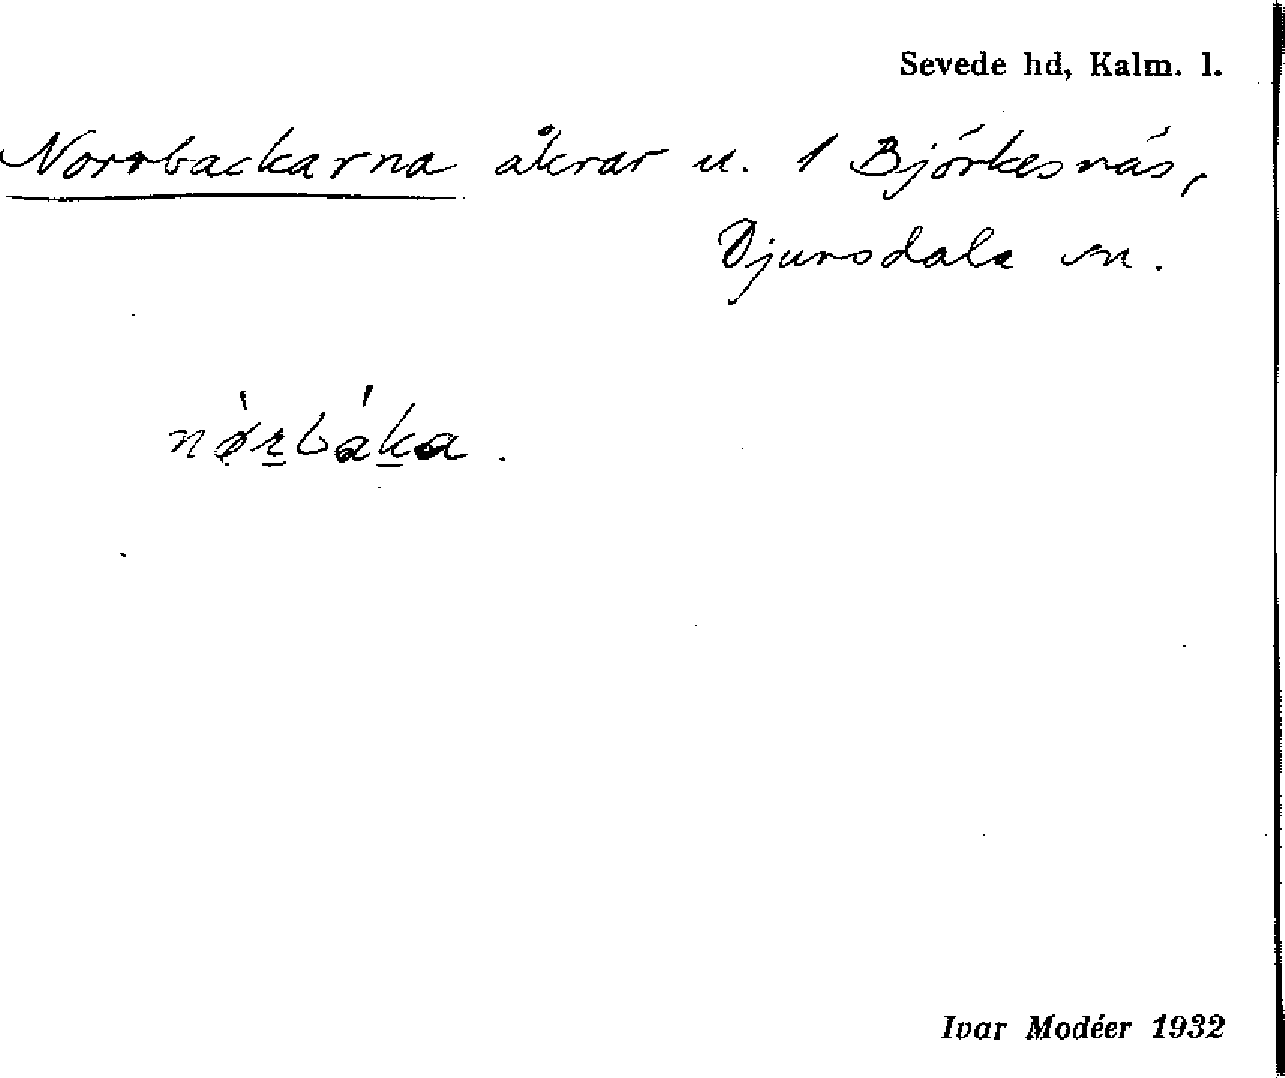 Sevede hd, Kalm. l.
Norrbackarna åkrar u. 1 Björkesnäs,
Djursdala sn.
nø̀rbáka.
Ivar Modéer 1932